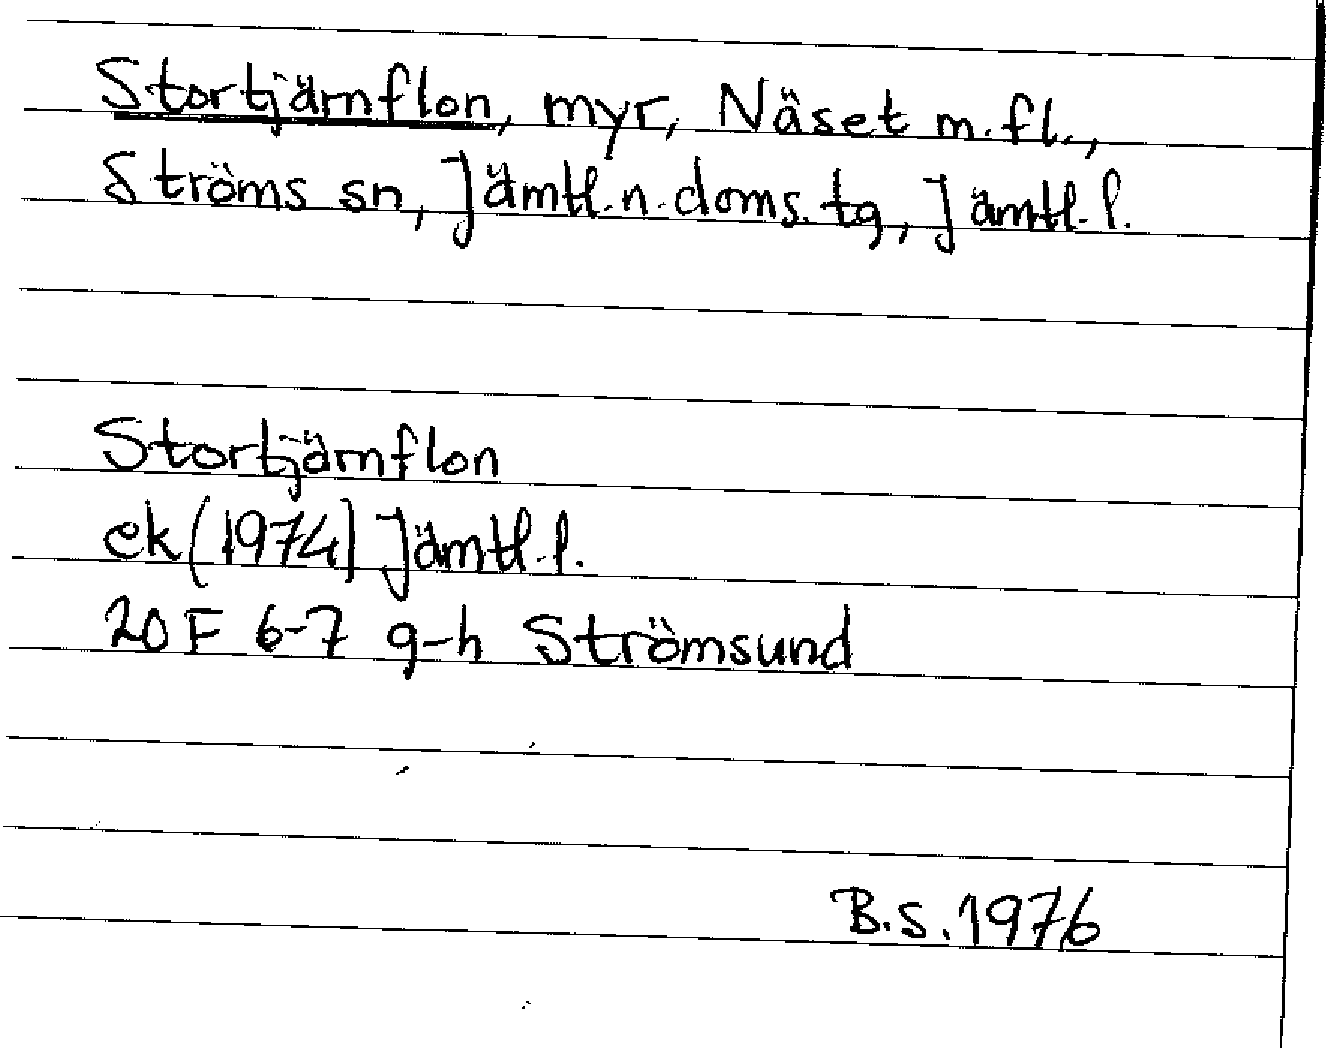 Stortjärnflon, myr, Näset m.fl.,
Ströms sn, Jämtl.n.doms.tg, Jämtl.l.
Stortjärnflon
ek (1974) Jämtl.l.
20 F 6-7 g-h Strömsund
B.S. 1976